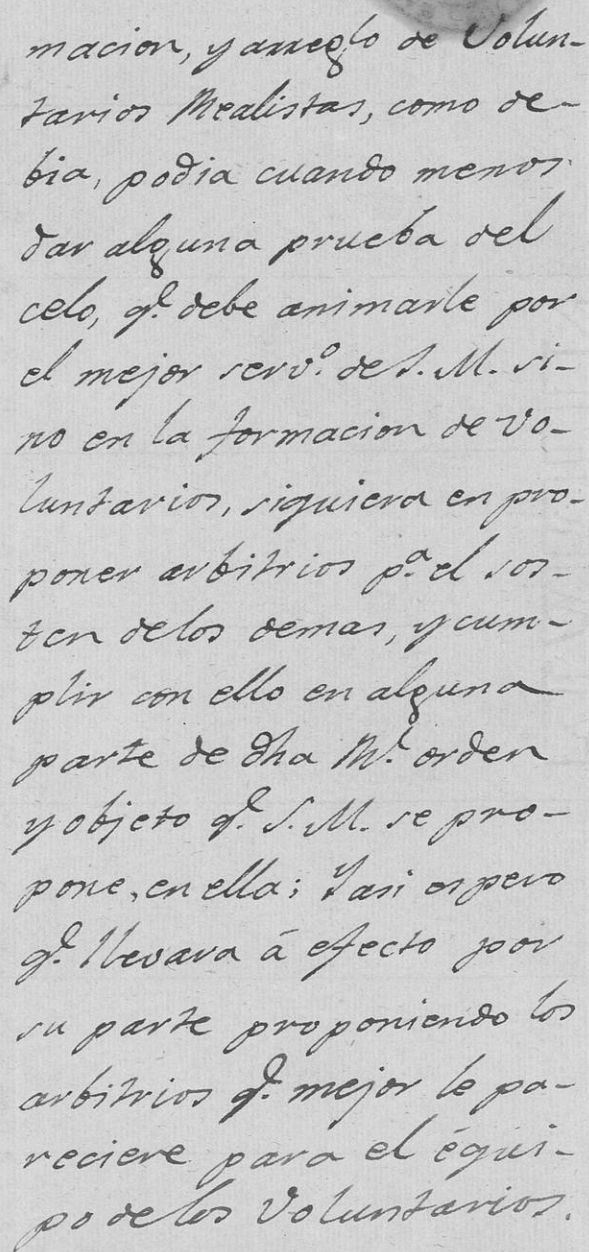 macion, y arreglo de Volun-
tarios Realistas, como de-
bia, podia cuando menos
dar alguna prueba del
celo, q.e debe animarle por
el mejor serv.o de S. M. si-
no en la formacion de vo-
luntarios, siquiera en pro-
poner arbitrios p.a el sos-
ten delos demas, y cum-
plir con ello en alguna
parte de dha R.l orden
y objeto q.e S. M. se pro-
pone, en ella; Y asi espero
q.e llevara á efecto por
su parte proponiendo los
arbitrios q.e mejor le pa-
reciere para el équi-
po de los Voluntarios.